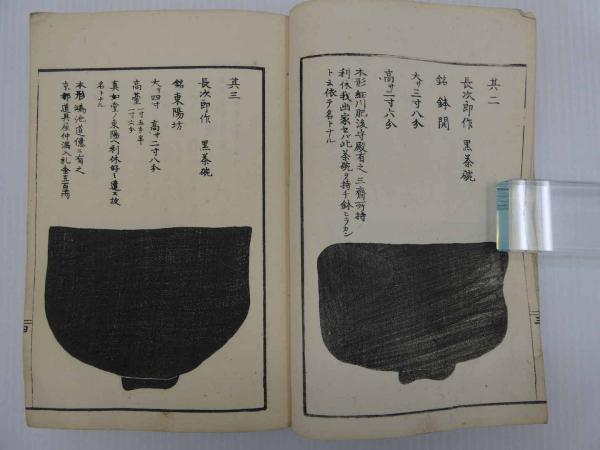 其二
長次郎作 黒茶碗
銘 鉢開
大サ三寸八分
高サ二寸六分
本形細川肥後守殿有之 三齋所持
利休我出家セバ此茶碗ヲ持チ鉢ヒラカン
ト云依テ名トナル
三
其三
長次郎作 黒茶碗
銘 東陽坊
大サ四寸 高サ二寸八分
高臺 一寸五分半
二寸六分
真如堂ノ東陽ヘ利休好ミ遣ス故
名トナル
本形鴻池道億ニ有之
京都道具屋仲満入札金五百両
四